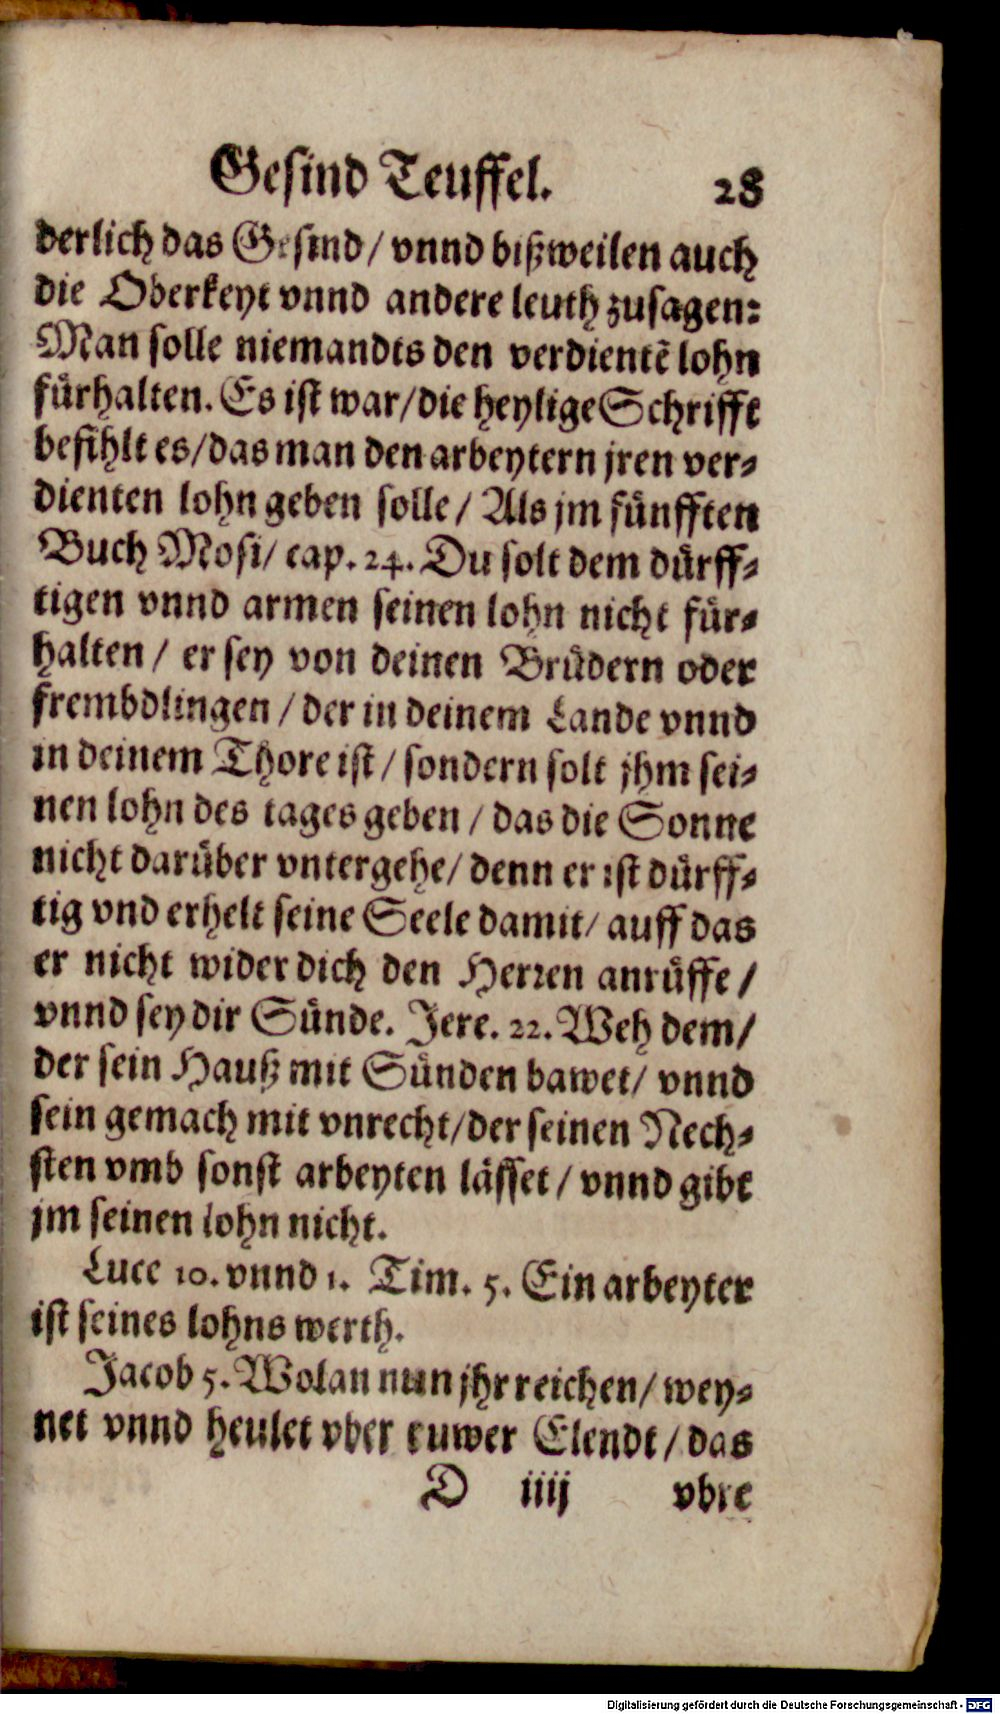 Gesind Teuffel. 28
derlich das Gesind / vnnd bißweilen auch
die Oberkeyt vnnd andere leuth zusagen:
Man solle niemandts den verdientẽ lohn
fürhalten. Es ist war / die heylige Schrifft
befihlt es / das man den arbeytern jren ver⸗
dienten lohn geben solle / Als jm fünfften
Buch Mosi / cap. 24. Du solt dem dürff⸗
tigen vnnd armen seinen lohn nicht für⸗
halten / er sey von deinen Brüdern oder
frembdlingen / der in deinem Lande vnnd
in deinem Thore ist / sondern solt jhm sei⸗
nen lohn des tages geben / das die Sonne
nicht darüber vntergehe / denn er ist dürff⸗
tig vnd erhelt seine Seele damit / auff das
er nicht wider dich den Herren anrüffe /
vnnd sey dir Sünde. Jere. 22. Weh dem /
der sein Hauß mit Sünden bawet / vnnd
sein gemach mit vnrecht / der seinen Nech⸗
sten vmb sonst arbeyten lässet / vnnd gibt
jm seinen lohn nicht.
Luce 10. vnnd 1. Tim. 5. Ein arbeyter
ist seines lohns werth.
Jacob 5. Wolan nun jhr reichen / wey⸗
net vnnd heulet vber euwer Elendt / das
D iiij vbre
Digitalisierung gefördert durch die Deutsche Forschungsgemeinschaft - DFG